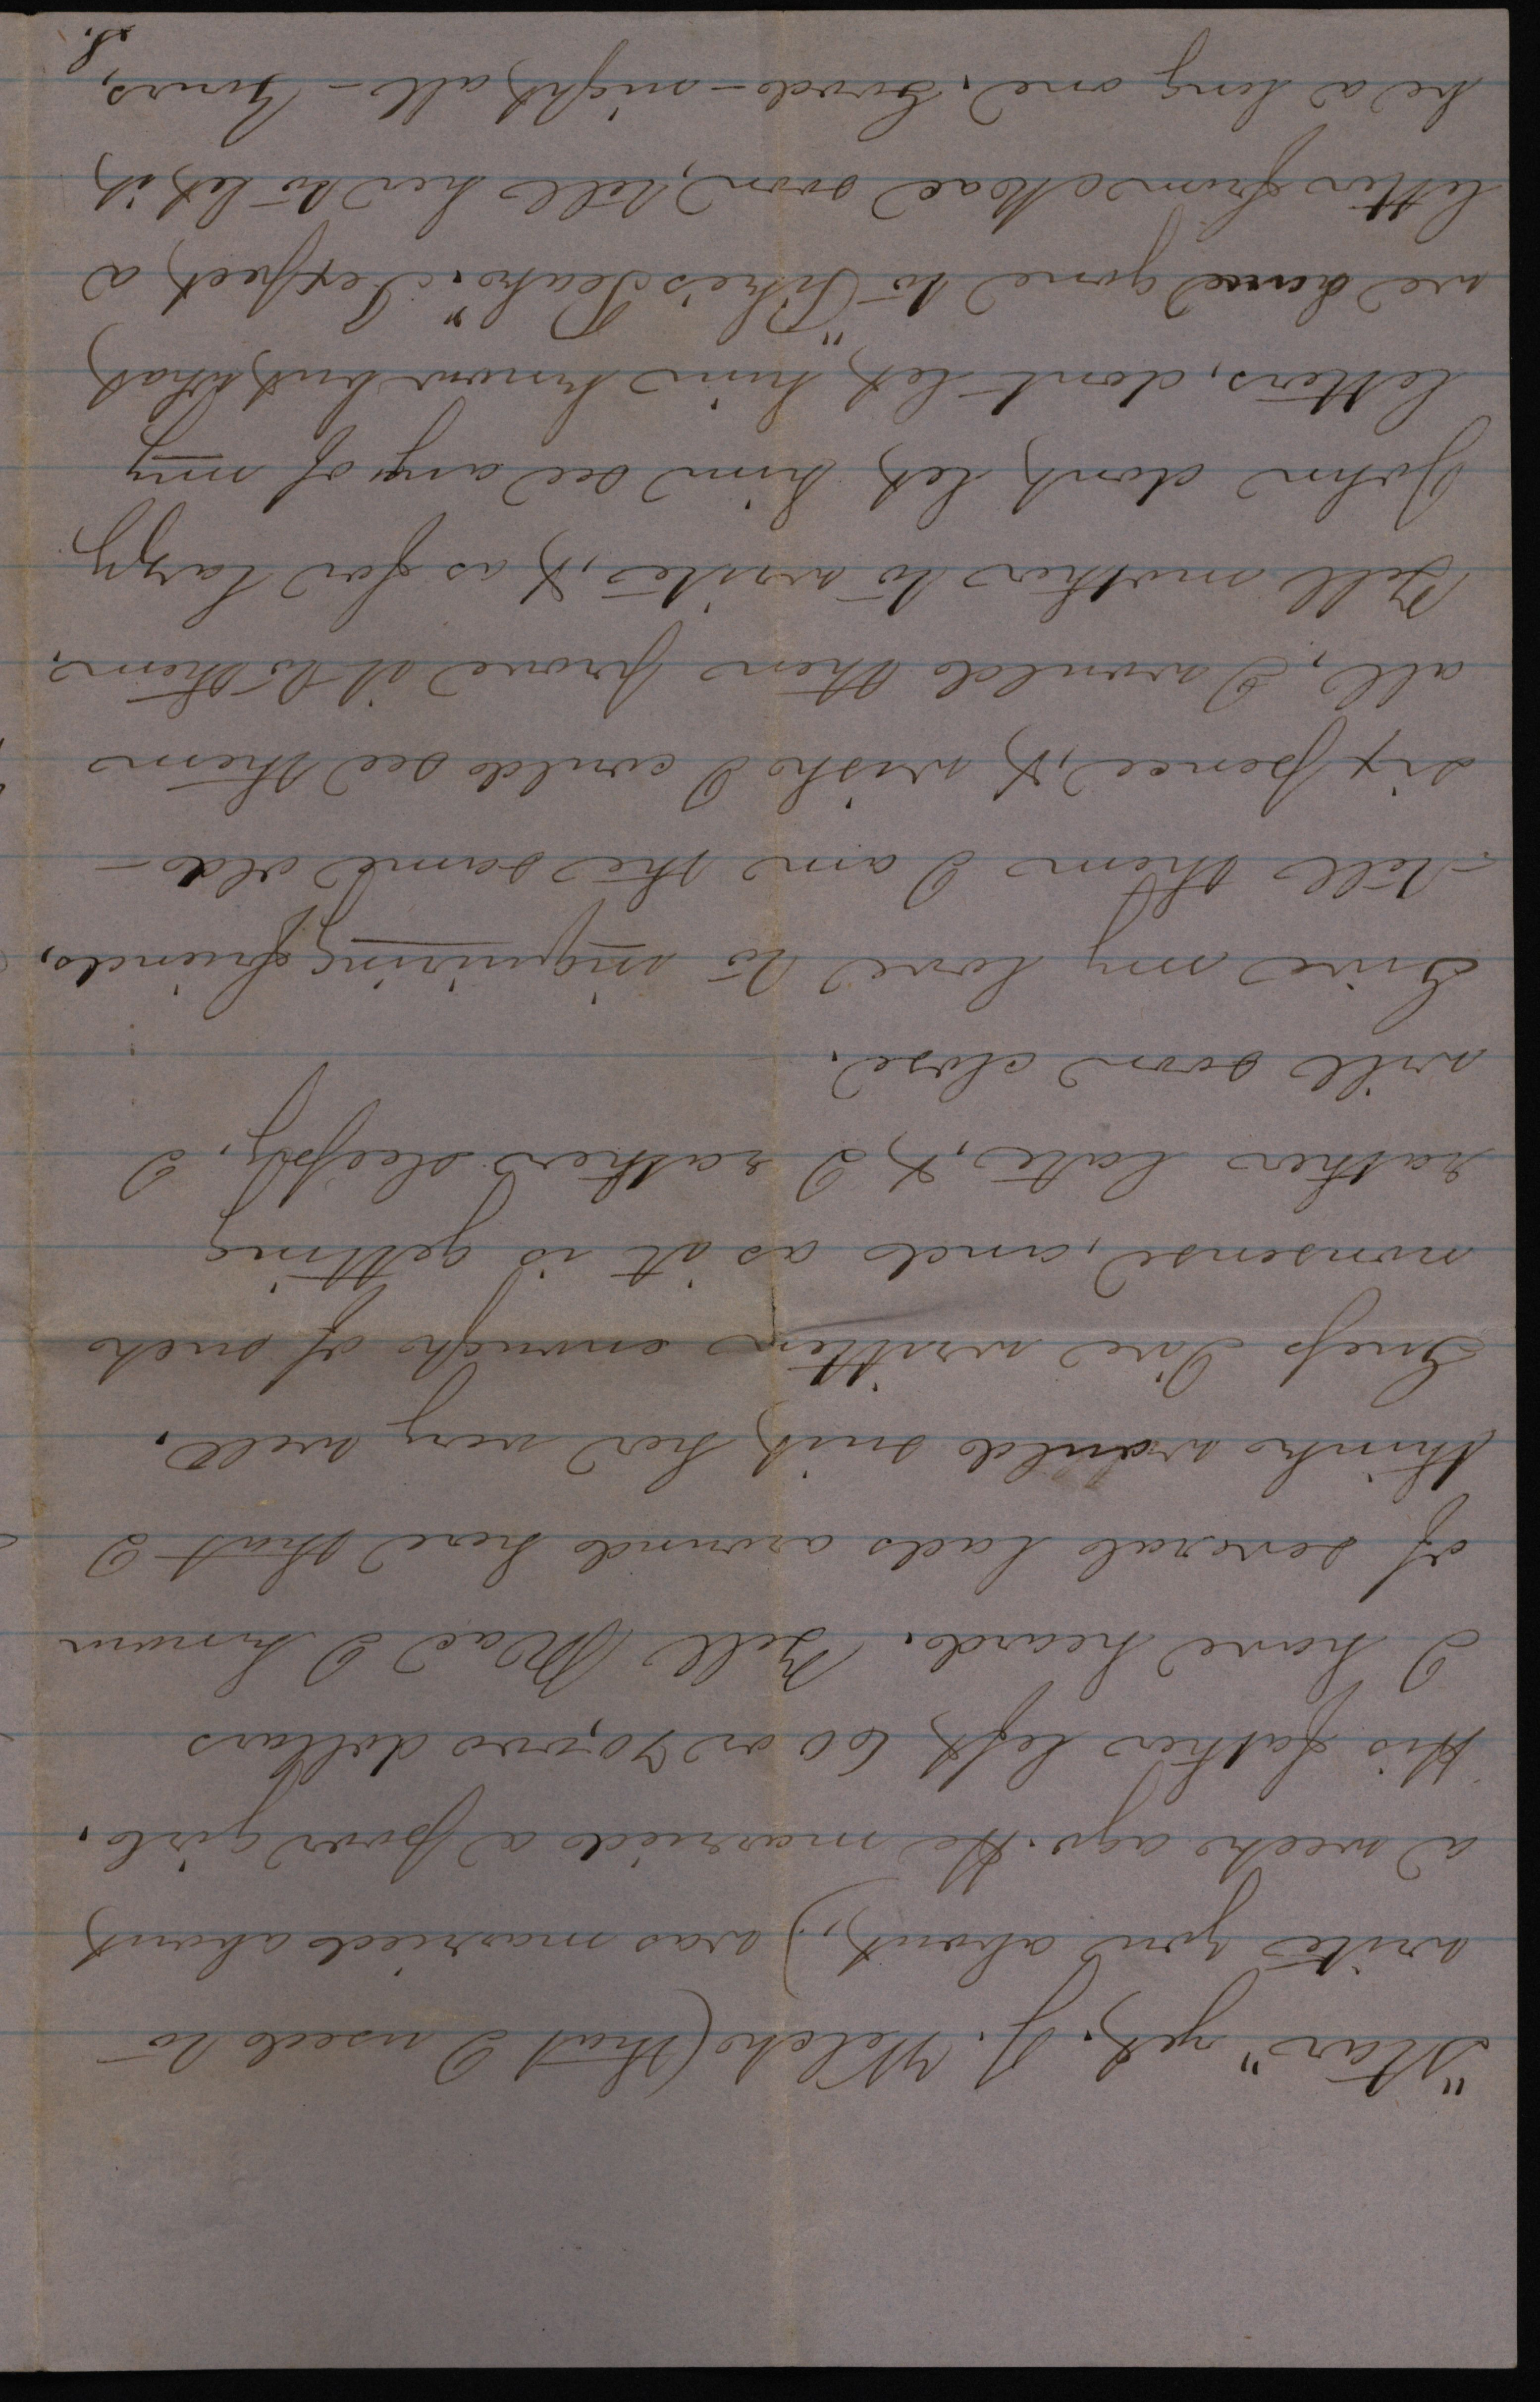 "Star" yet. J. Welch (that I used to
write you about,) was married about
a week ago. He married a poor girl.
His father left 60 or 70,000 dollars
I have heard. Tell Mac I know
of several lads around here that I
think would suit her very well.
Guess I've written enough of such
nonsense, and as it is getting
rather late, & I rather sleepy, I
will soon close.
Give my love to inquiring friends,
- tell them I am the same old -
six pence, & wish I could see them
all, I would then prove it to them.
Tell mother to write, & as for lazy
John dont let him see any of my
letters, dont let him know but what
we have gone to "Pike's Peak." I expect a
letter from Mac soon, tell her to let it
be a long one. Good-night all - Yours,
S.